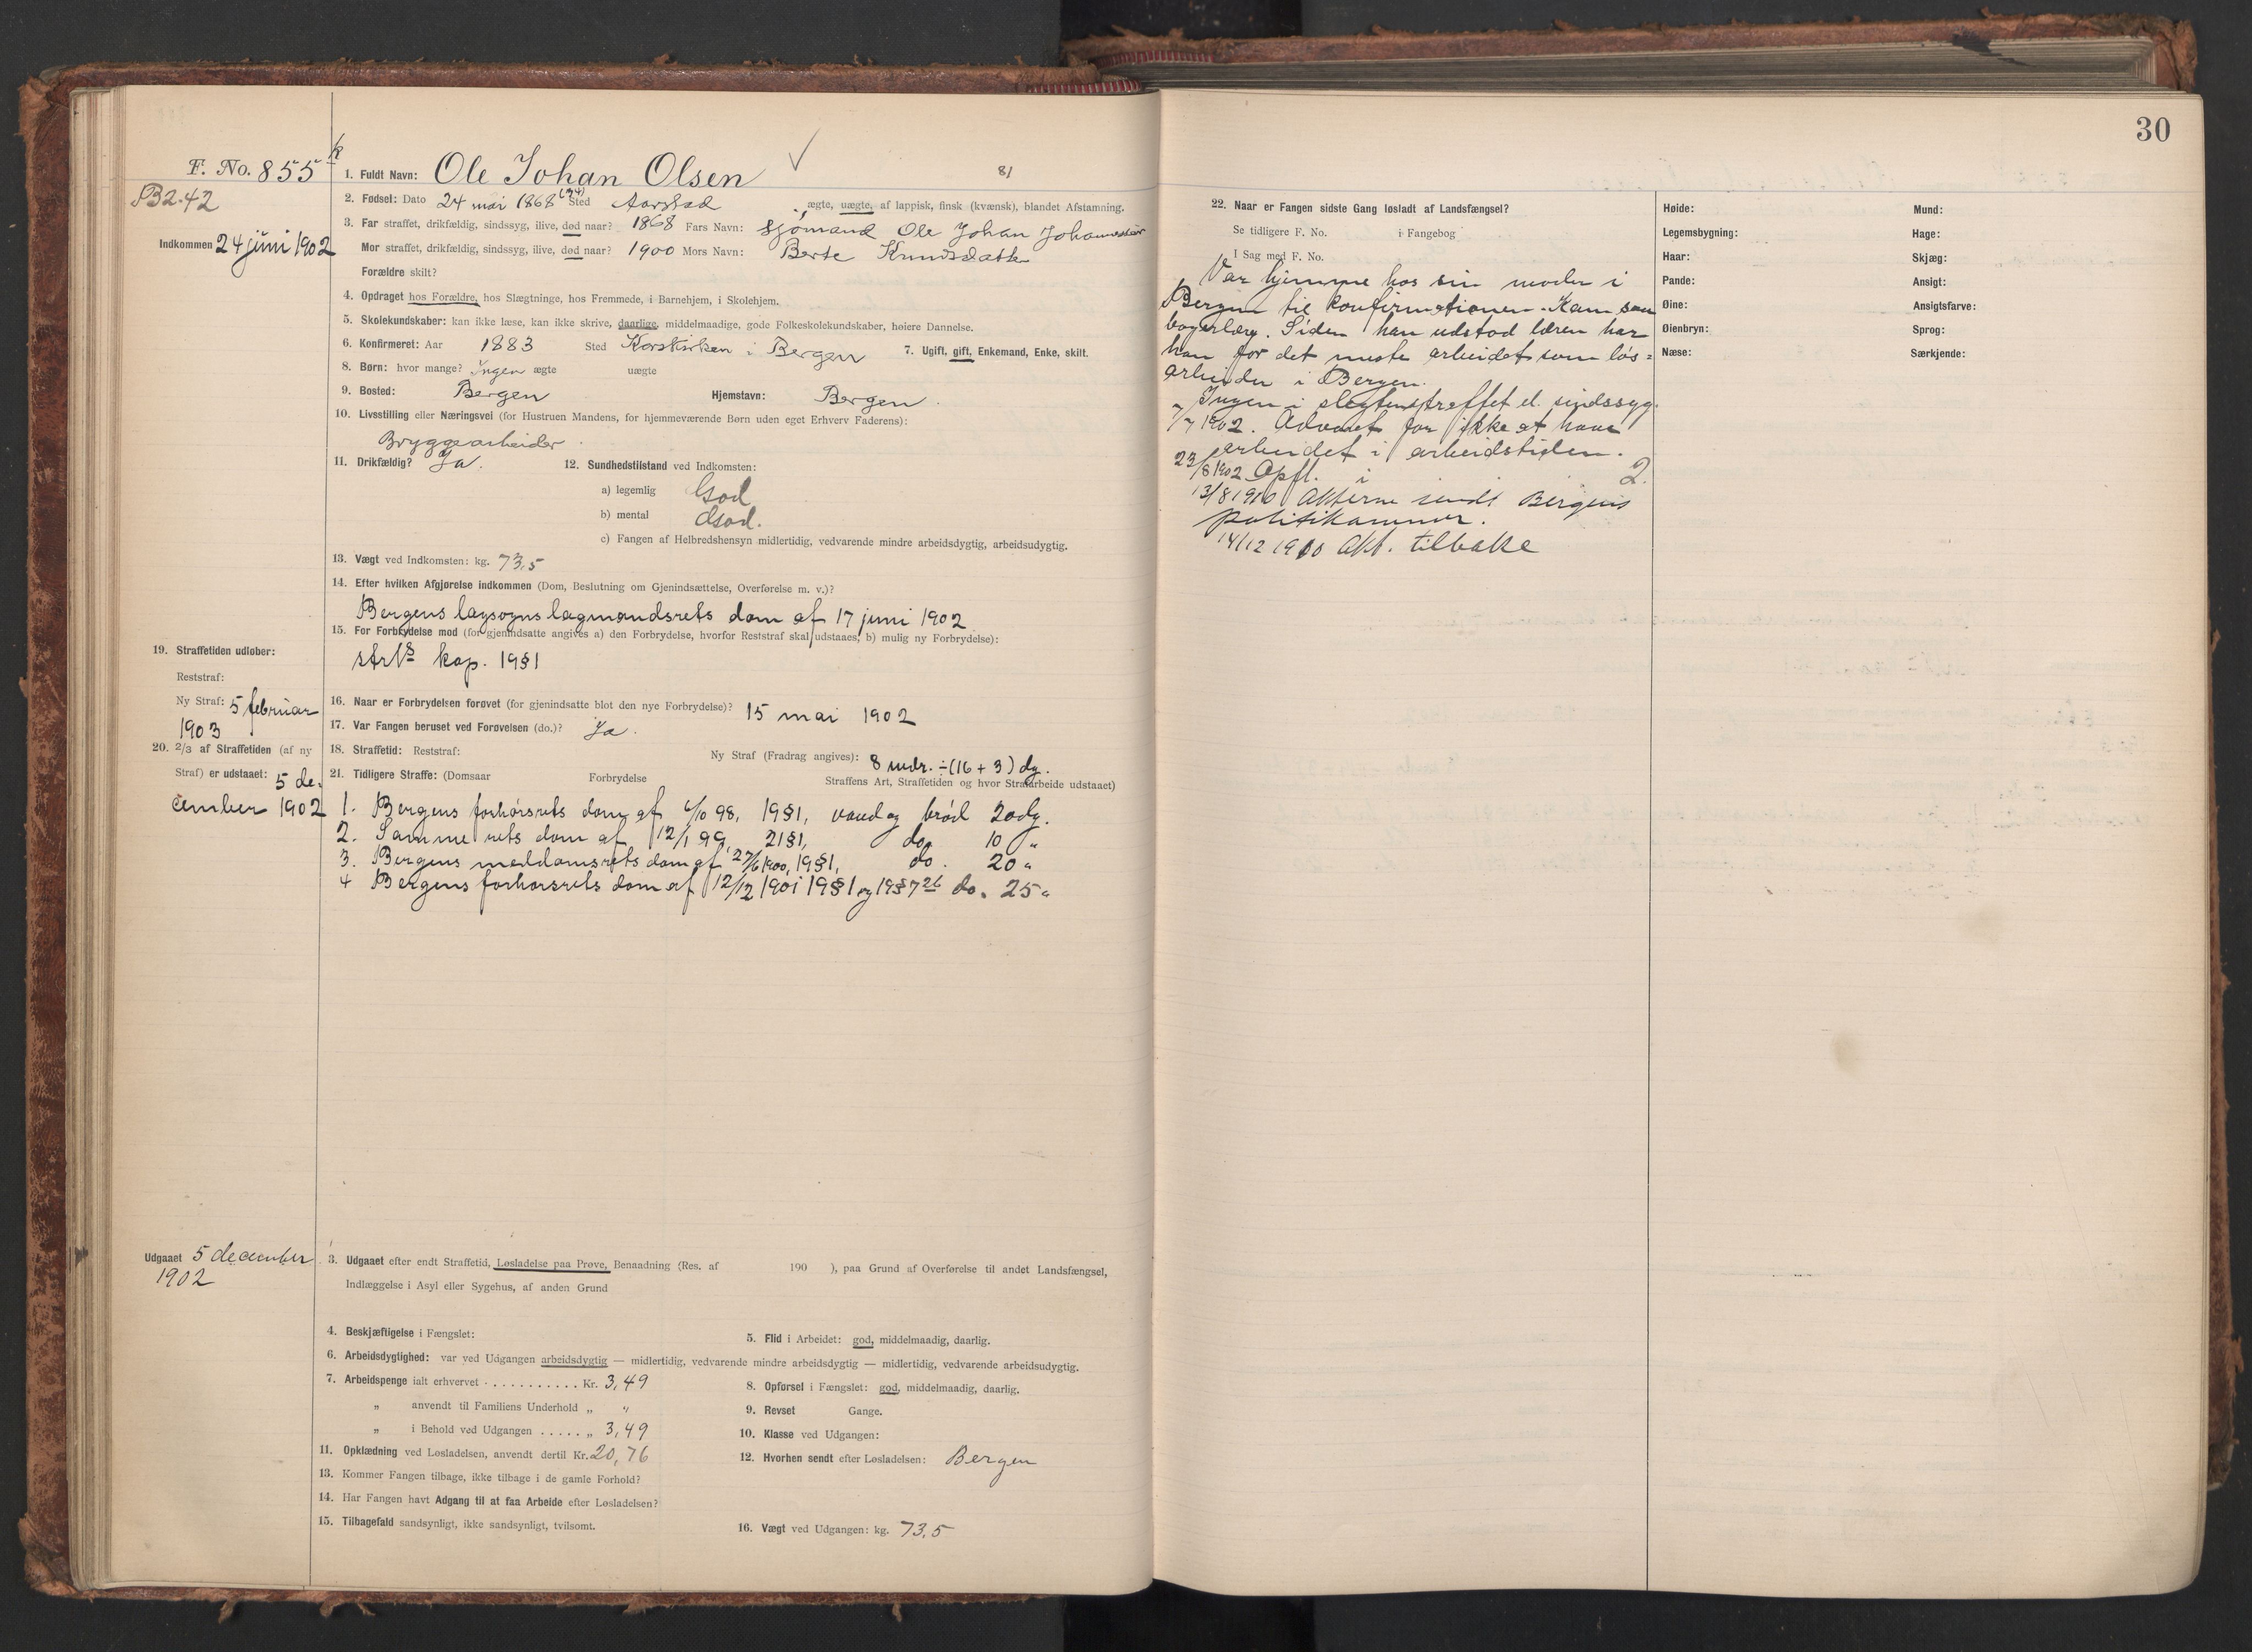 30
F. No. 855 k
B2-42
Indkommen 24 juni 1902
1. Fuldt Navn: Ole Johan Olsen 81
2. Fødsel: Dato 24 mai 1868 (34) Sted Aarstad ægte, uægte, af lappisk, finsk (kvænsk), blandet Afstamning.
3. Far straffet, drikfældig, sindssyg, ilive, død naar? 1868 Fars Navn: Sjømand Ole Johan Johannessen
Mor straffet, drikfældig, sindssyg, ilive, død naar? 1900 Mors Navn: Berte Knudsdatter
Forældre skilt?
4. Opdraget hos Forældre, hos Slægtninge, hos Fremmede, i Barnehjem, i Skolehjem.
5. Skolekundskaber: kan ikke læse, kan ikke skrive, daarlige, middelmaadige, gode Folkeskolekundskaber, høiere Dannelse.
6. Konfirmeret: Aar 1883 Sted Korskirken i Bergen 7. Ugift, gift, Enkemand, Enke, skilt.
8. Børn: hvor mange? Ingen ægte uægte
9. Bosted: Bergen Hjemstavn: Bergen.
10. Livsstilling eller Næringsvei (for Hustruen Mandens, for hjemmeværende Børn uden eget Erhverv Faderens):
Bryggearbeider.
11. Drikfældig? Ja. 12. Sundhedstilstand ved Indkomsten:
a) legemlig God
b) mental God.
c) Fangen af Helbredshensyn midlertidig, vedvarende mindre arbeidsdygtig, arbeidsudygtig.
13. Vægt ved Indkomsten: kg. 73,5
14. Efter hvilken Afgjørelse indkommen (Dom, Beslutning om Gjenindsættelse, Overførelse m. v.)?
Bergens lagsogns lagmandsrets dom af 17 juni 1902
15. For Forbrydelse mod (for gjenindsatte angives a) den Forbrydelse, hvorfor Reststraf skal udstaaes, b) mulig ny Forbrydelse):
strls kap. 19 § 1
16. Naar er Forbrydelsen forøvet (for gjenindsatte blot den nye Forbrydelse)? 15 mai 1902
17. Var Fangen beruset ved Forøvelsen (do.)? Ja.
18. Straffetid: Reststraf: Ny Straf (Fradrag angives): 8 mdr. ÷ (16 + 3) dg.
19. Straffetiden udløber:
Reststraf:
Ny Straf: 5 februar
1903
20. 2/3 af Straffetiden (af ny
Straf) er udstaaet: 5 de-
cember 1902
21. Tidligere Straffe: (Domsaar Forbrydelse Straffens Art, Straffetiden og hvor Strafarbeide udstaaet)
1. Bergens forhørsrets dom af 6/10 98, 19 § 1, vand og brød 20 dg.
2. Samme rets dom af 12/1 99, 21 § 1, do. 10 "
3. Bergens meddomsrets dom af 27/6 1900, 19 § 1, do. 20 "
4 Bergens forhørsrets dom af 12/12 1901 19 § 1 og 19 § 7 26 do. 25 "
Udgaaet 5 december
1902
3. Udgaaet efter endt Straffetid, Løsladelse paa Prøve, Benaadning (Res. af 190 ), paa Grund af Overførelse til andet Landsfængsel,
Indlæggelse i Asyl eller Sygehus, af anden Grund
4. Beskjæftigelse i Fængslet: 5. Flid i Arbeidet: god, middelmaadig, daarlig.
6. Arbeidsdygtighed: var ved Udgangen arbeidsdygtig — midlertidig, vedvarende mindre arbeidsdygtig — midlertidig, vedvarende arbeidsudygtig.
7. Arbeidspenge ialt erhvervet . . . . . . . . . . . Kr. 3,49 8. Opførsel i Fængslet: god, middelmaadig, daarlig.
„ anvendt til Familiens Underhold „ " 9. Revset Gange.
„ i Behold ved Udgangen . . . . . „ 3,49 10. Klasse ved Udgangen:
11. Opklædning ved Løsladelsen, anvendt dertil Kr. 20,76 12. Hvorhen sendt efter Løsladelsen: Bergen
13. Kommer Fangen tilbage, ikke tilbage i de gamle Forhold?
14. Har Fangen havt Adgang til at faa Arbeide efter Løsladelsen?
15. Tilbagefald sandsynligt, ikke sandsynligt, tvilsomt. 16. Vægt ved Udgangen: kg. 73,5
22. Naar er Fangen sidste Gang løsladt af Landsfængsel?
Se tidligere F. No. i Fangebog
I Sag med F. No.
Var hjemme hos sin moder i
Bergen til konfirmationen. Kam saa
bagerlære. Siden han udstod læren har
han for det meste arbeidet som løs=
arbeider i Bergen.
Ingen i slegten straffet el. sindssyg.
7/7 1902. Advaret for ikke at have
arbeidet i arbeidstiden.
23/8 1902 Opfl. i 2.
13/8 1910 Akterne sendt Bergens
politikammer.
14/12 1910 Akt. tilbake
Høide: Mund:
Legemsbygning: Hage:
Haar: Skjæg:
Pande: Ansigt:
Øine: Ansigtsfarve:
Øienbryn: Sprog:
Næse: Særkjende: